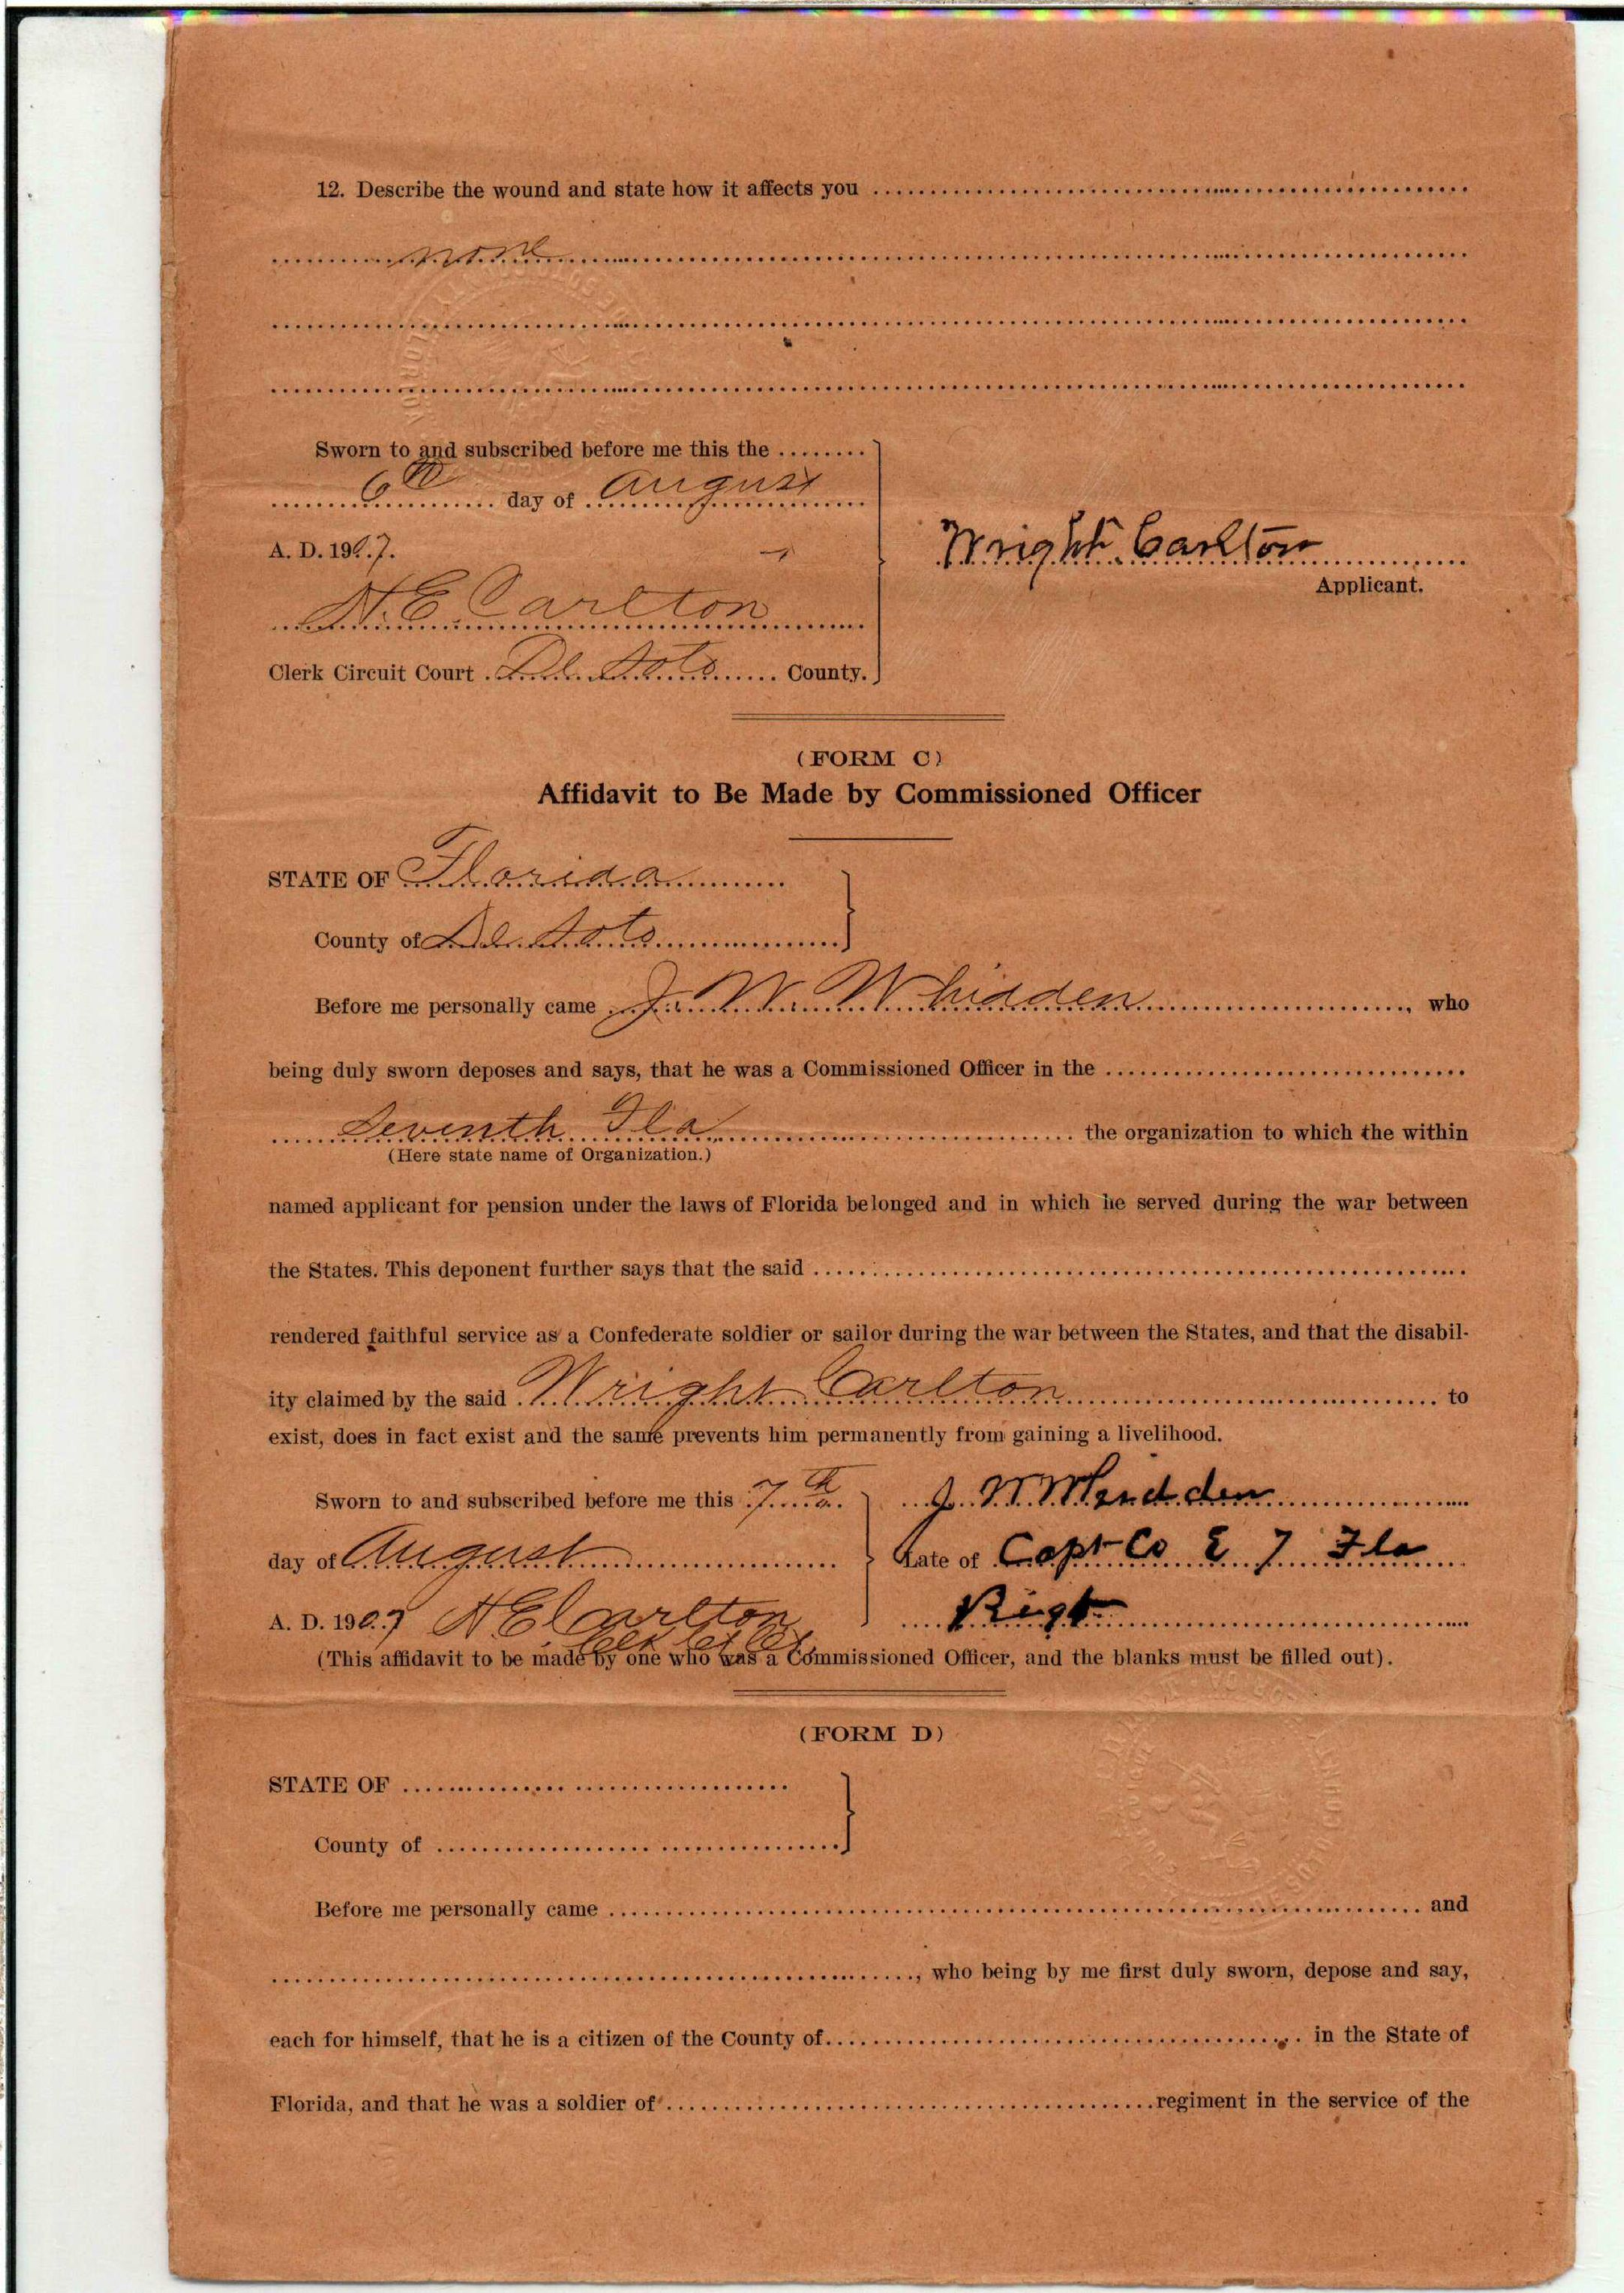 12. Describe the wound and state how it affects you
none
Sworn to and subscribed before me this the
6th day of August
A. D. 1907.
N. E. Carlton
Wright Carlton
Applicant.
Clerk Circuit Court De Soto County.
(FORM C)
Affidavit to Be Made by Commissioned Officer
STATE OF Florida
County of De Soto
Before me personally came J. W. Whidden, who
being duly sworn deposes and says, that he was a Commissioned Officer in the
Seventh Fla the organization to which the within
(Here state name of Organization.)
named applicant for pension under the laws of Florida belonged and in which he served during the war between
the States. This deponent further says that the said
rendered faithful service as a Confederate soldier or sailor during the war between the States, and that the disabil-
ity claimed by the said Wright Carlton to
exist, does in fact exist and the same prevents him permanently from gaining a livelihood.
Sworn to and subscribed before me this 7th
day of August
A. D. 1907 N E Carlton
Clk
J W Whidden
Late of Capt Co E 7 Fla
Rigt
(This affidavit to be made by one who was a Commissioned Officer, and the blanks must be filled out).
(FORM D)
STATE OF
County of
Before me personally came and
, who being by me first duly sworn, depose and say,
each for himself, that he is a citizen of the County of in the State of
Florida, and that he was a soldier of regiment in the service of the